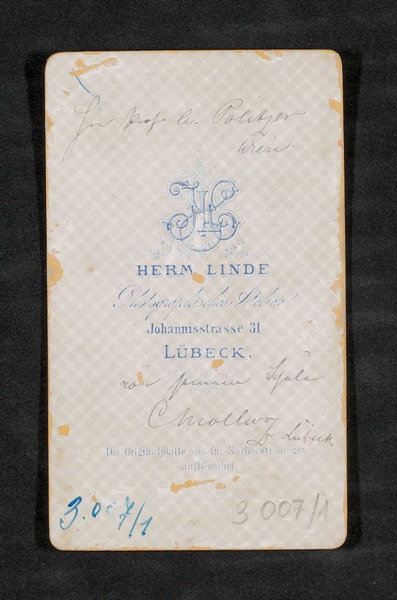 Prof. A. Politzer
Wien.
HL
HERM. LINDE
Photographisches Atelier
Johannisstrasse 31
LÜBECK.
von seinem Schüler
Dr Lübeck
Die Originalplatte wird für Nachbestellungen
aufbewahrt
3.007/1
3 007/1